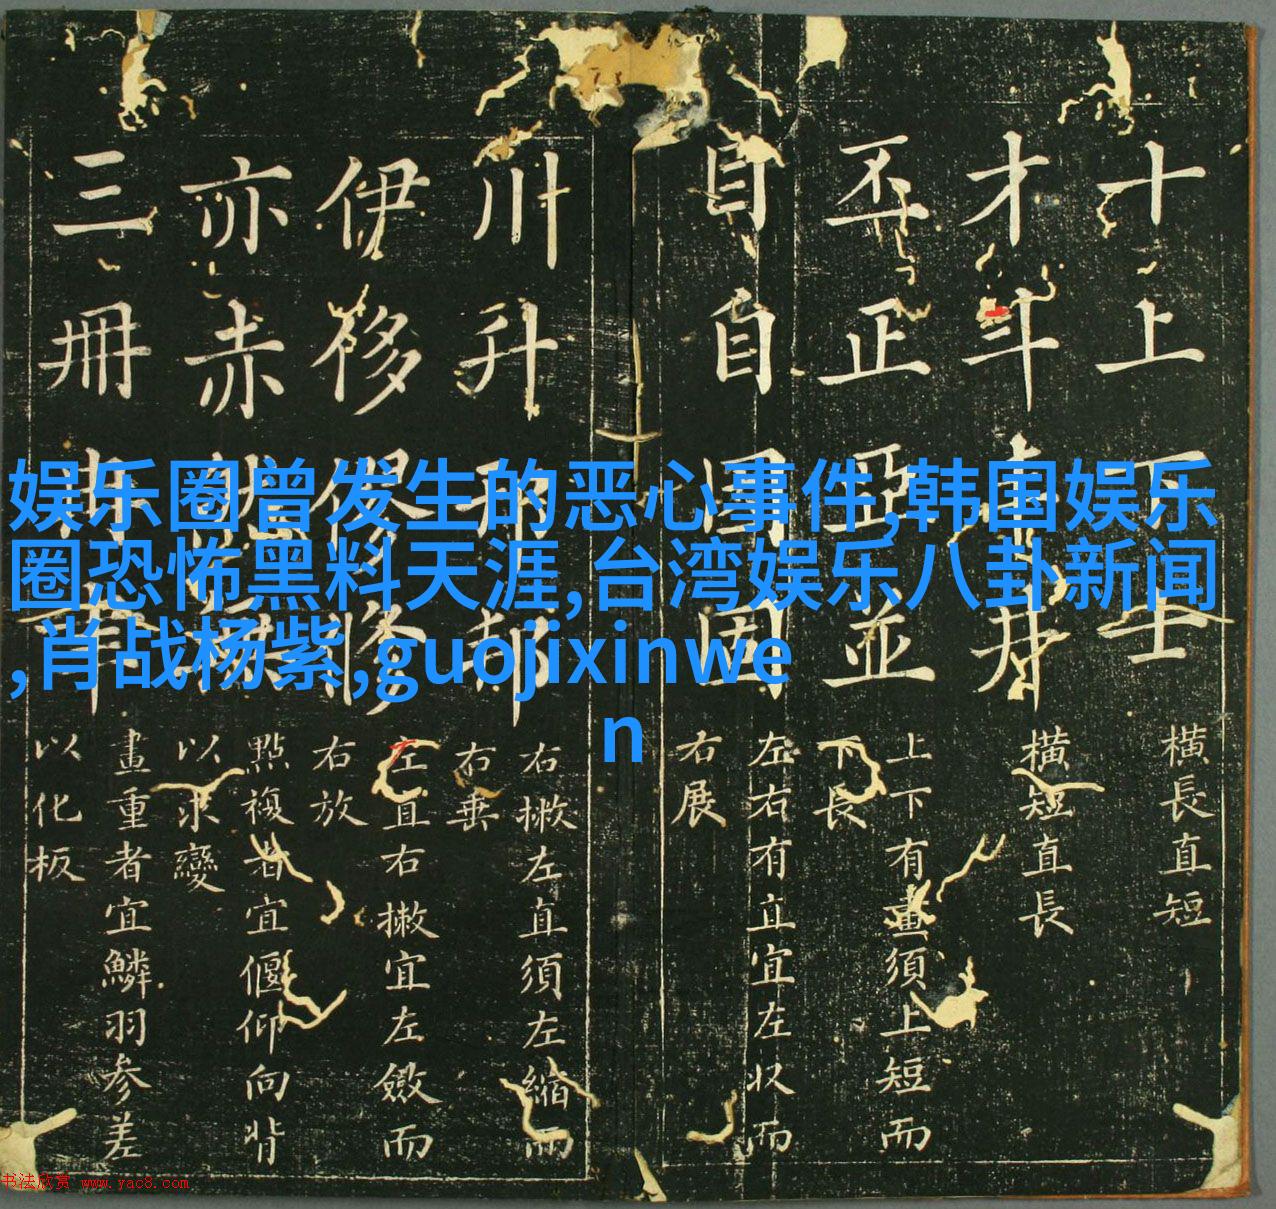 娱乐圈曾发生的恶心事件,韩国娱乐
圈恐怖黑料天涯,台湾娱乐八卦新闻
,肖战杨紫,guojixinwe
n
十上下士
橫長直短
才斗
橫短直長
丕正亞並
上下有畫須上短而
下長
目自固
左右有直宜左收而
右展
川升
右撇左直須左縮而
右垂
伊侈修
左直右撇宜左斂而
右放
亦赤
點複者宜偃仰向背
以求變
三冊
畫重者宜鱗羽參差
以化板
书法欣赏 www.yac8.com